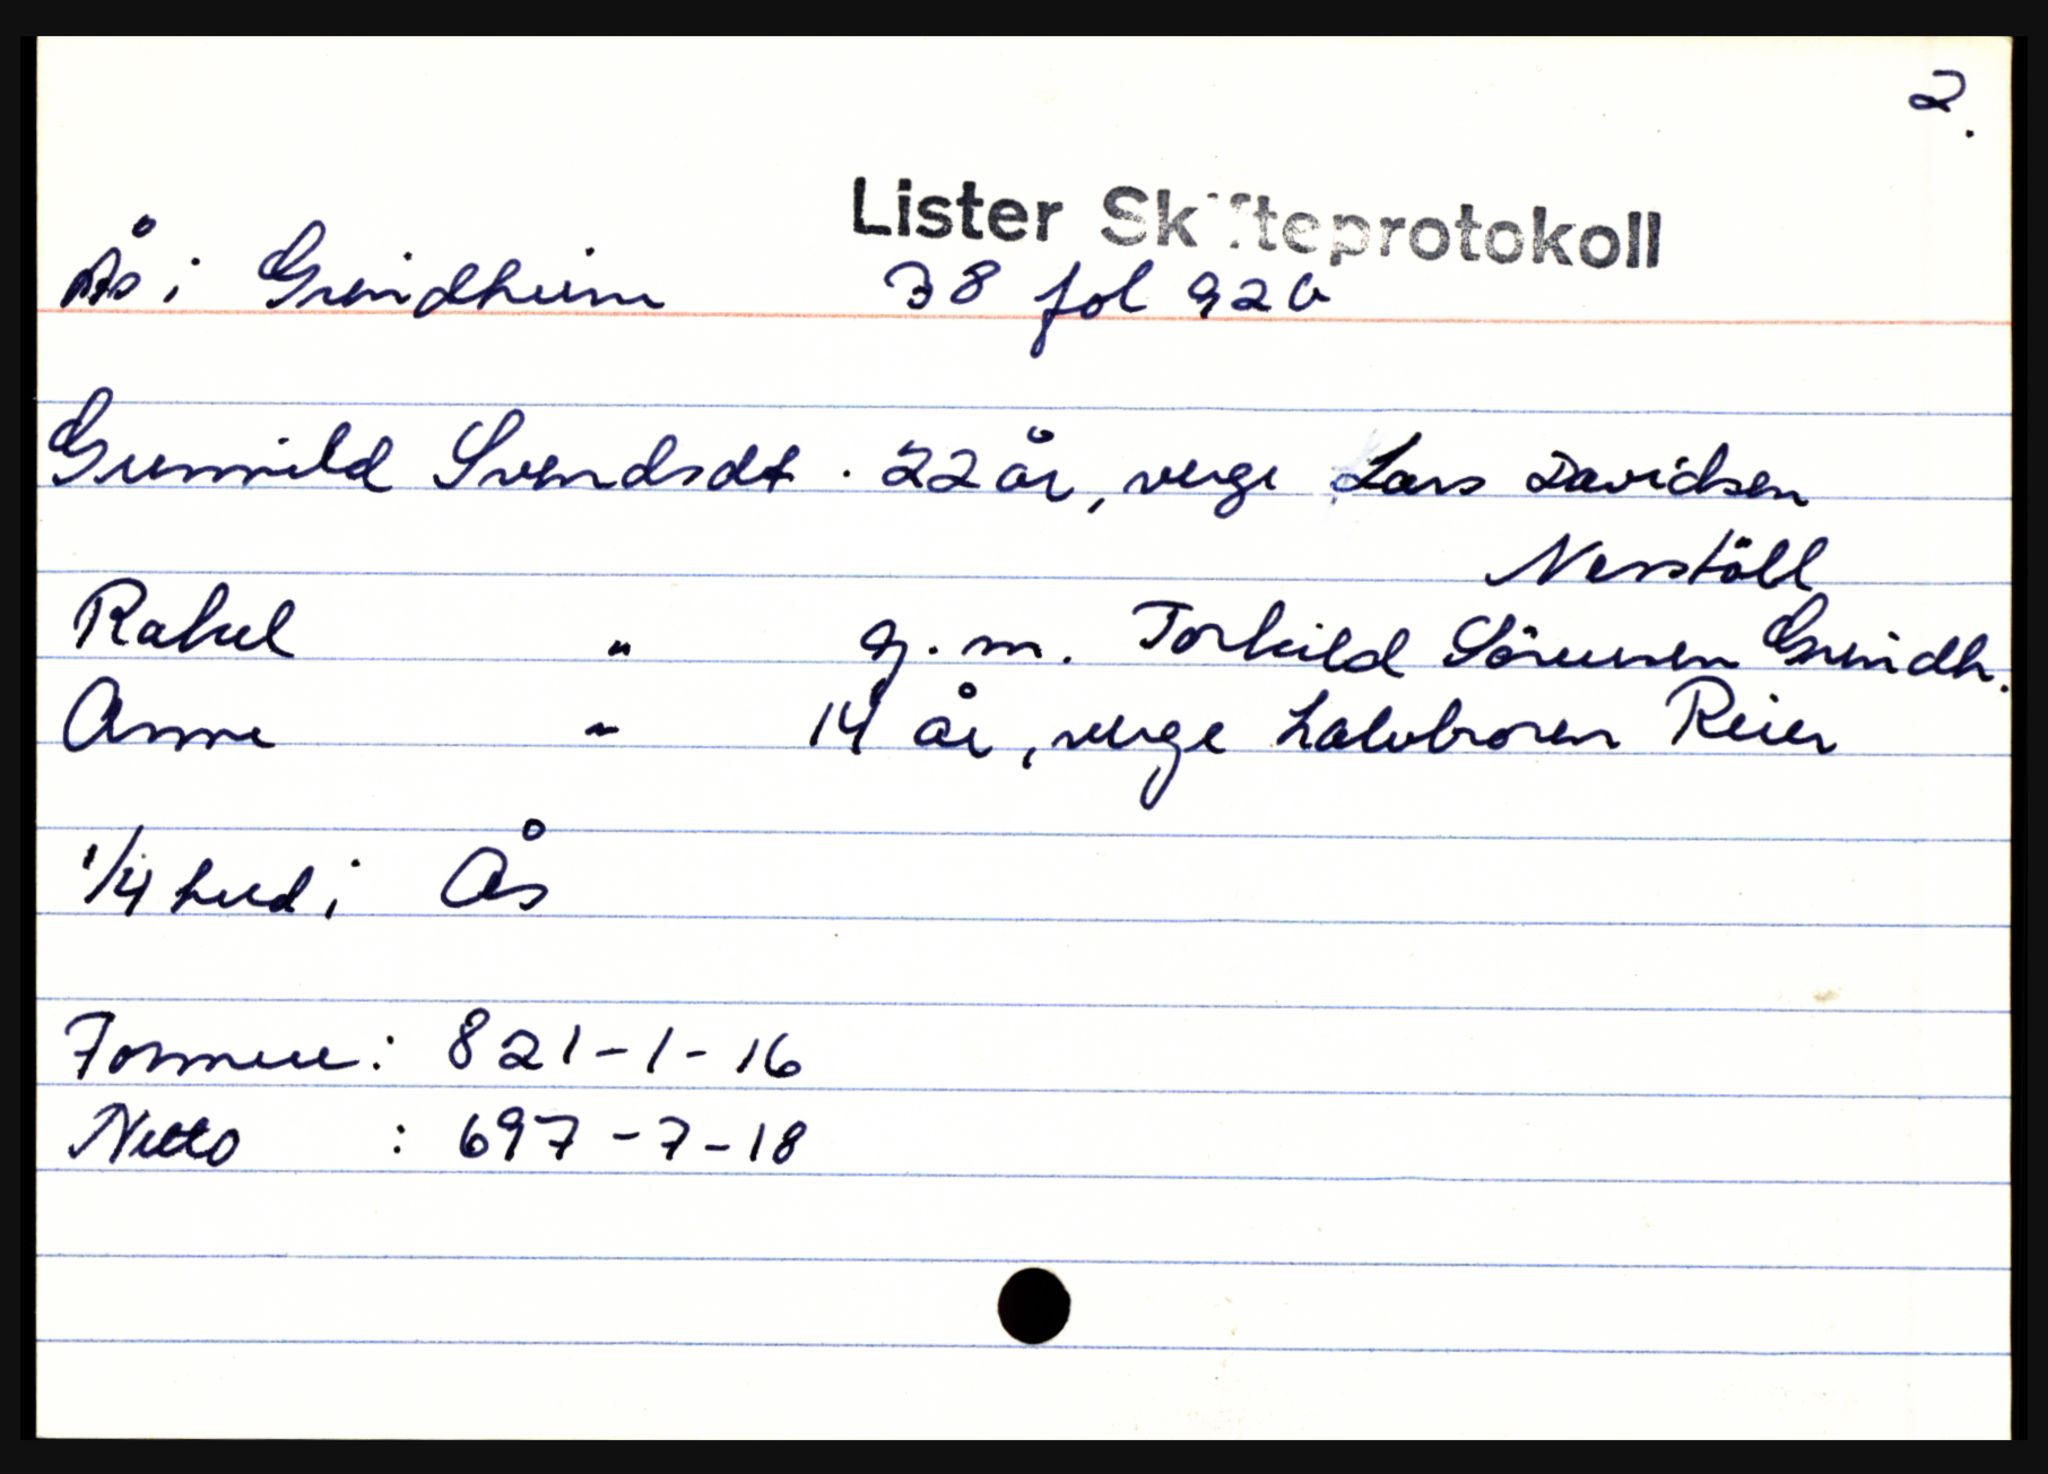 2.
Lister Skifteprotokoll
Ås i Grindheim 38 fol 92b
Gunnild Svendsdt. 22 år, verge Lars Davidsen
Nerstöll
Rakel " g.m. Torkild Sörensen Grindh.
Anne " 14 år, verge halvbroren Reier
1/4 hud i Ås
Formue: 821-1-16
Netto : 697-7-18